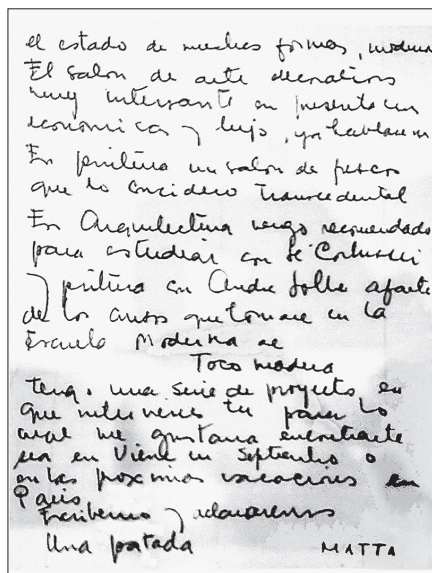 el estado de muchas formas, moderna
El salon de arte decorativo
muy interesante en presentacion
economica y lujo, ya hablaremos
En pintura un salon de frescos
que lo considero transcedental
En Arquitectura vengo recomendado
para estudiar con Le Corbusier
y pintura con Andre Lothe aparte
de los cursos que tomare en la
Escuela Moderna de
Toco madera
tengo una serie de proyectos en
que intervienes tu para lo
cual me gustaria encontrarte
sea en Viena en Septiembre o
en las proximas vacaciones en
Paris
Escribenos y aclararemos
Una patada MATTA